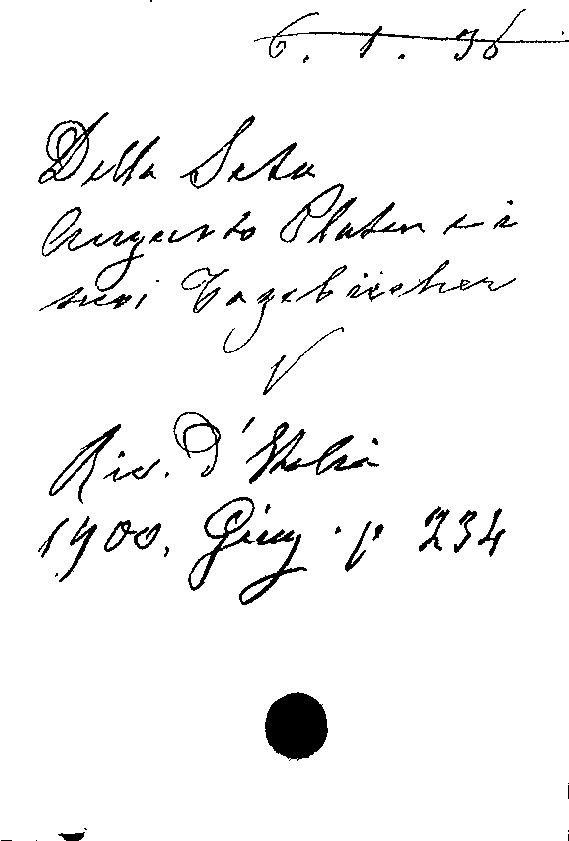 6. 1. 36
Della Seta
Augusto Platen e i
suoi Tagebücher
V
Riv. d'Italia
1900, Giug. p 234